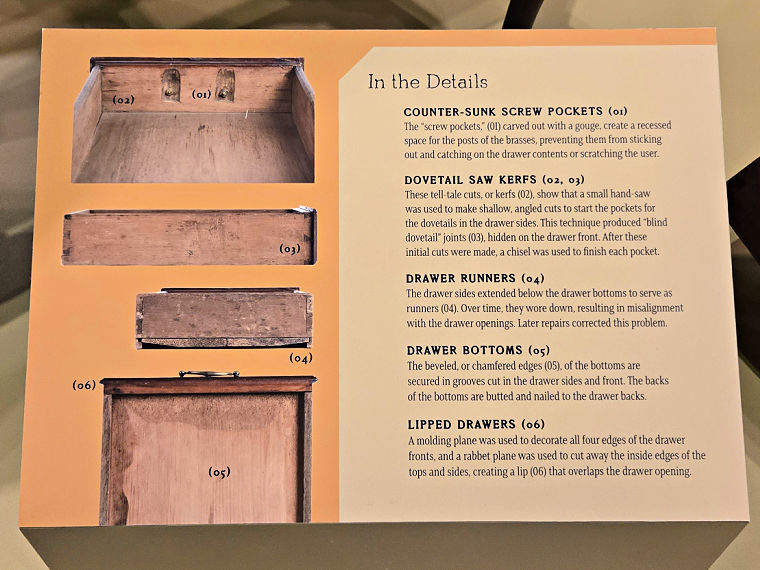 In the Details
COUNTER-SUNK SCREW POCKETS (01)
The “screw pockets,” (01) carved out with a gouge, create a recessed
space for the posts of the brasses, preventing them from sticking
out and catching on the drawer contents or scratching the user.
DOVETAIL SAW KERFS (02, 03)
These tell-tale cuts, or kerfs (02), show that a small hand-saw
was used to make shallow, angled cuts to start the pockets for
the dovetails in the drawer sides. This technique produced “blind
dovetail” joints (03), hidden on the drawer front. After these
initial cuts were made, a chisel was used to finish each pocket.
DRAWER RUNNERS (04)
The drawer sides extended below the drawer bottoms to serve as
runners (04). Over time, they wore down, resulting in misalignment
with the drawer openings. Later repairs corrected this problem.
DRAWER BOTTOMS (05)
The beveled, or chamfered edges (05), of the bottoms are
secured in grooves cut in the drawer sides and front. The backs
of the bottoms are butted and nailed to the drawer backs.
LIPPED DRAWERS (06)
A molding plane was used to decorate all four edges of the drawer
fronts, and a rabbet plane was used to cut away the inside edges of the
tops and sides, creating a lip (06) that overlaps the drawer opening.
(02) (01)
(03)
(04)
(06)
(05)